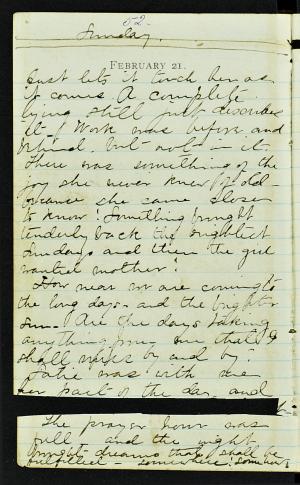 52.
Sunday.
FEBRUARY 21.
just lets it touch her as
it comes. A complete
lying still just describes
it - Work was before and
behind. but not in it.
There was something of the
joy she never knew of old -
because she came closer
to know! Something brought
tenderly back the brightest
Sundays and then the girl
wanted mother!
How near we are coming to
the long days - and the brighter
sun - Are the days taking
anything from me that I
shall miss by and by?
Katie was with me
her part of the day. and
The prayer hour was
full - and the night
brought dreams that shall be
fulfilled - somewhere: somehow